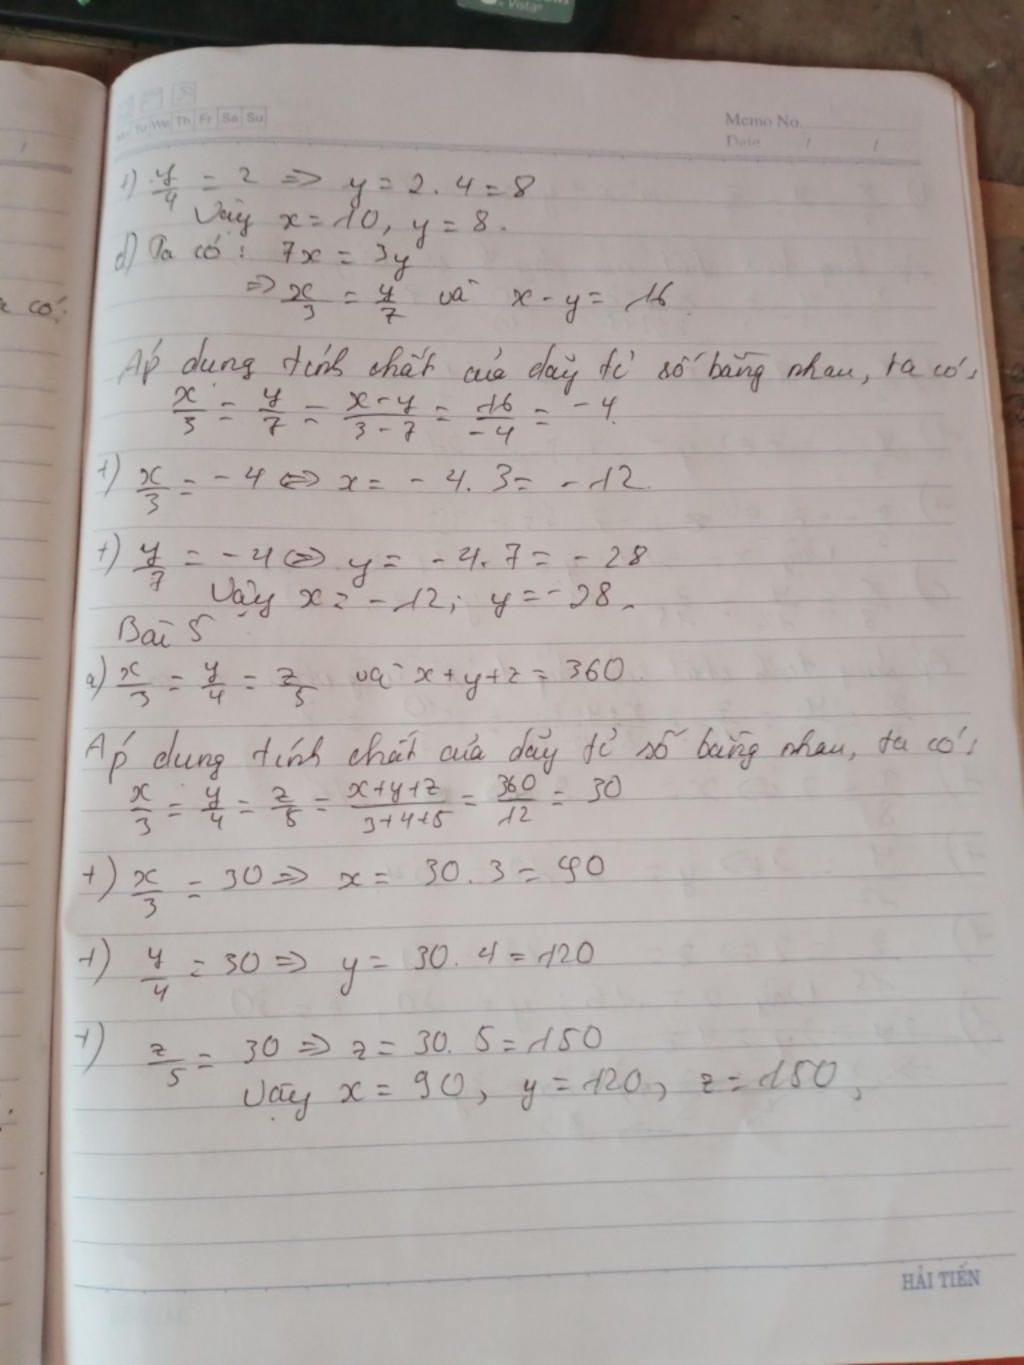 Vista
Mo Tu We Th Fr Sa Su
Memo No.
Date / /
+) y/4 = 2 => y = 2 . 4 = 8
Vậy x = 10, y = 8.
d) Ta có : 7x = 3y
=> x/3 = y/7 và x - y = 16
Áp dung tính chất của dãy tỉ số bằng nhau, ta có:
x/3 = y/7 = x-y/3-7 = 16/-4 = -4
+) x/3 = -4 <=> x = -4. 3 = -12
+) y/7 = -4 <=> y = -4. 7 = -28
Vậy x = -12; y = -28.
Bài 5
a) x/3 = y/4 = z/5 và x+y+z = 360
Áp dung tính chất của dãy tỉ số bằng nhau, ta có:
x/3 = y/4 = z/5 = x+y+z/3+4+5 = 360/12 = 30
+) x/3 = 30 => x = 30 . 3 = 90
+) y/4 = 30 => y = 30. 4 = 120
+) z/5 = 30 => z = 30. 5 = 150
Vậy x = 90, y = 120, z = 150,
có:
HẢI TIẾN